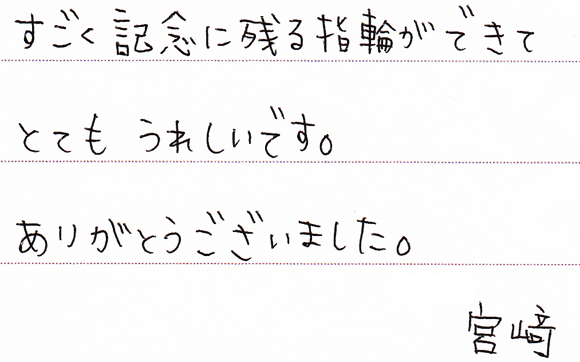 すごく記念に残る指輪ができて
とても うれしいです。
ありがとうございました。
宮﨑